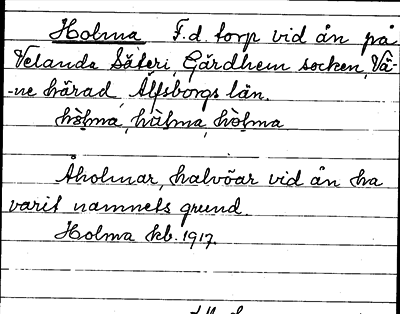 Holma F.d. torp vid ån på
Velanda Säteri, Gärdhem socken, Vä-
-ne härad, Älfsborgs län.
hòlma, hùlma, hòlma
Åholmar, halvöar vid ån ha
varit namnets grund.
Holma kb. 1917.